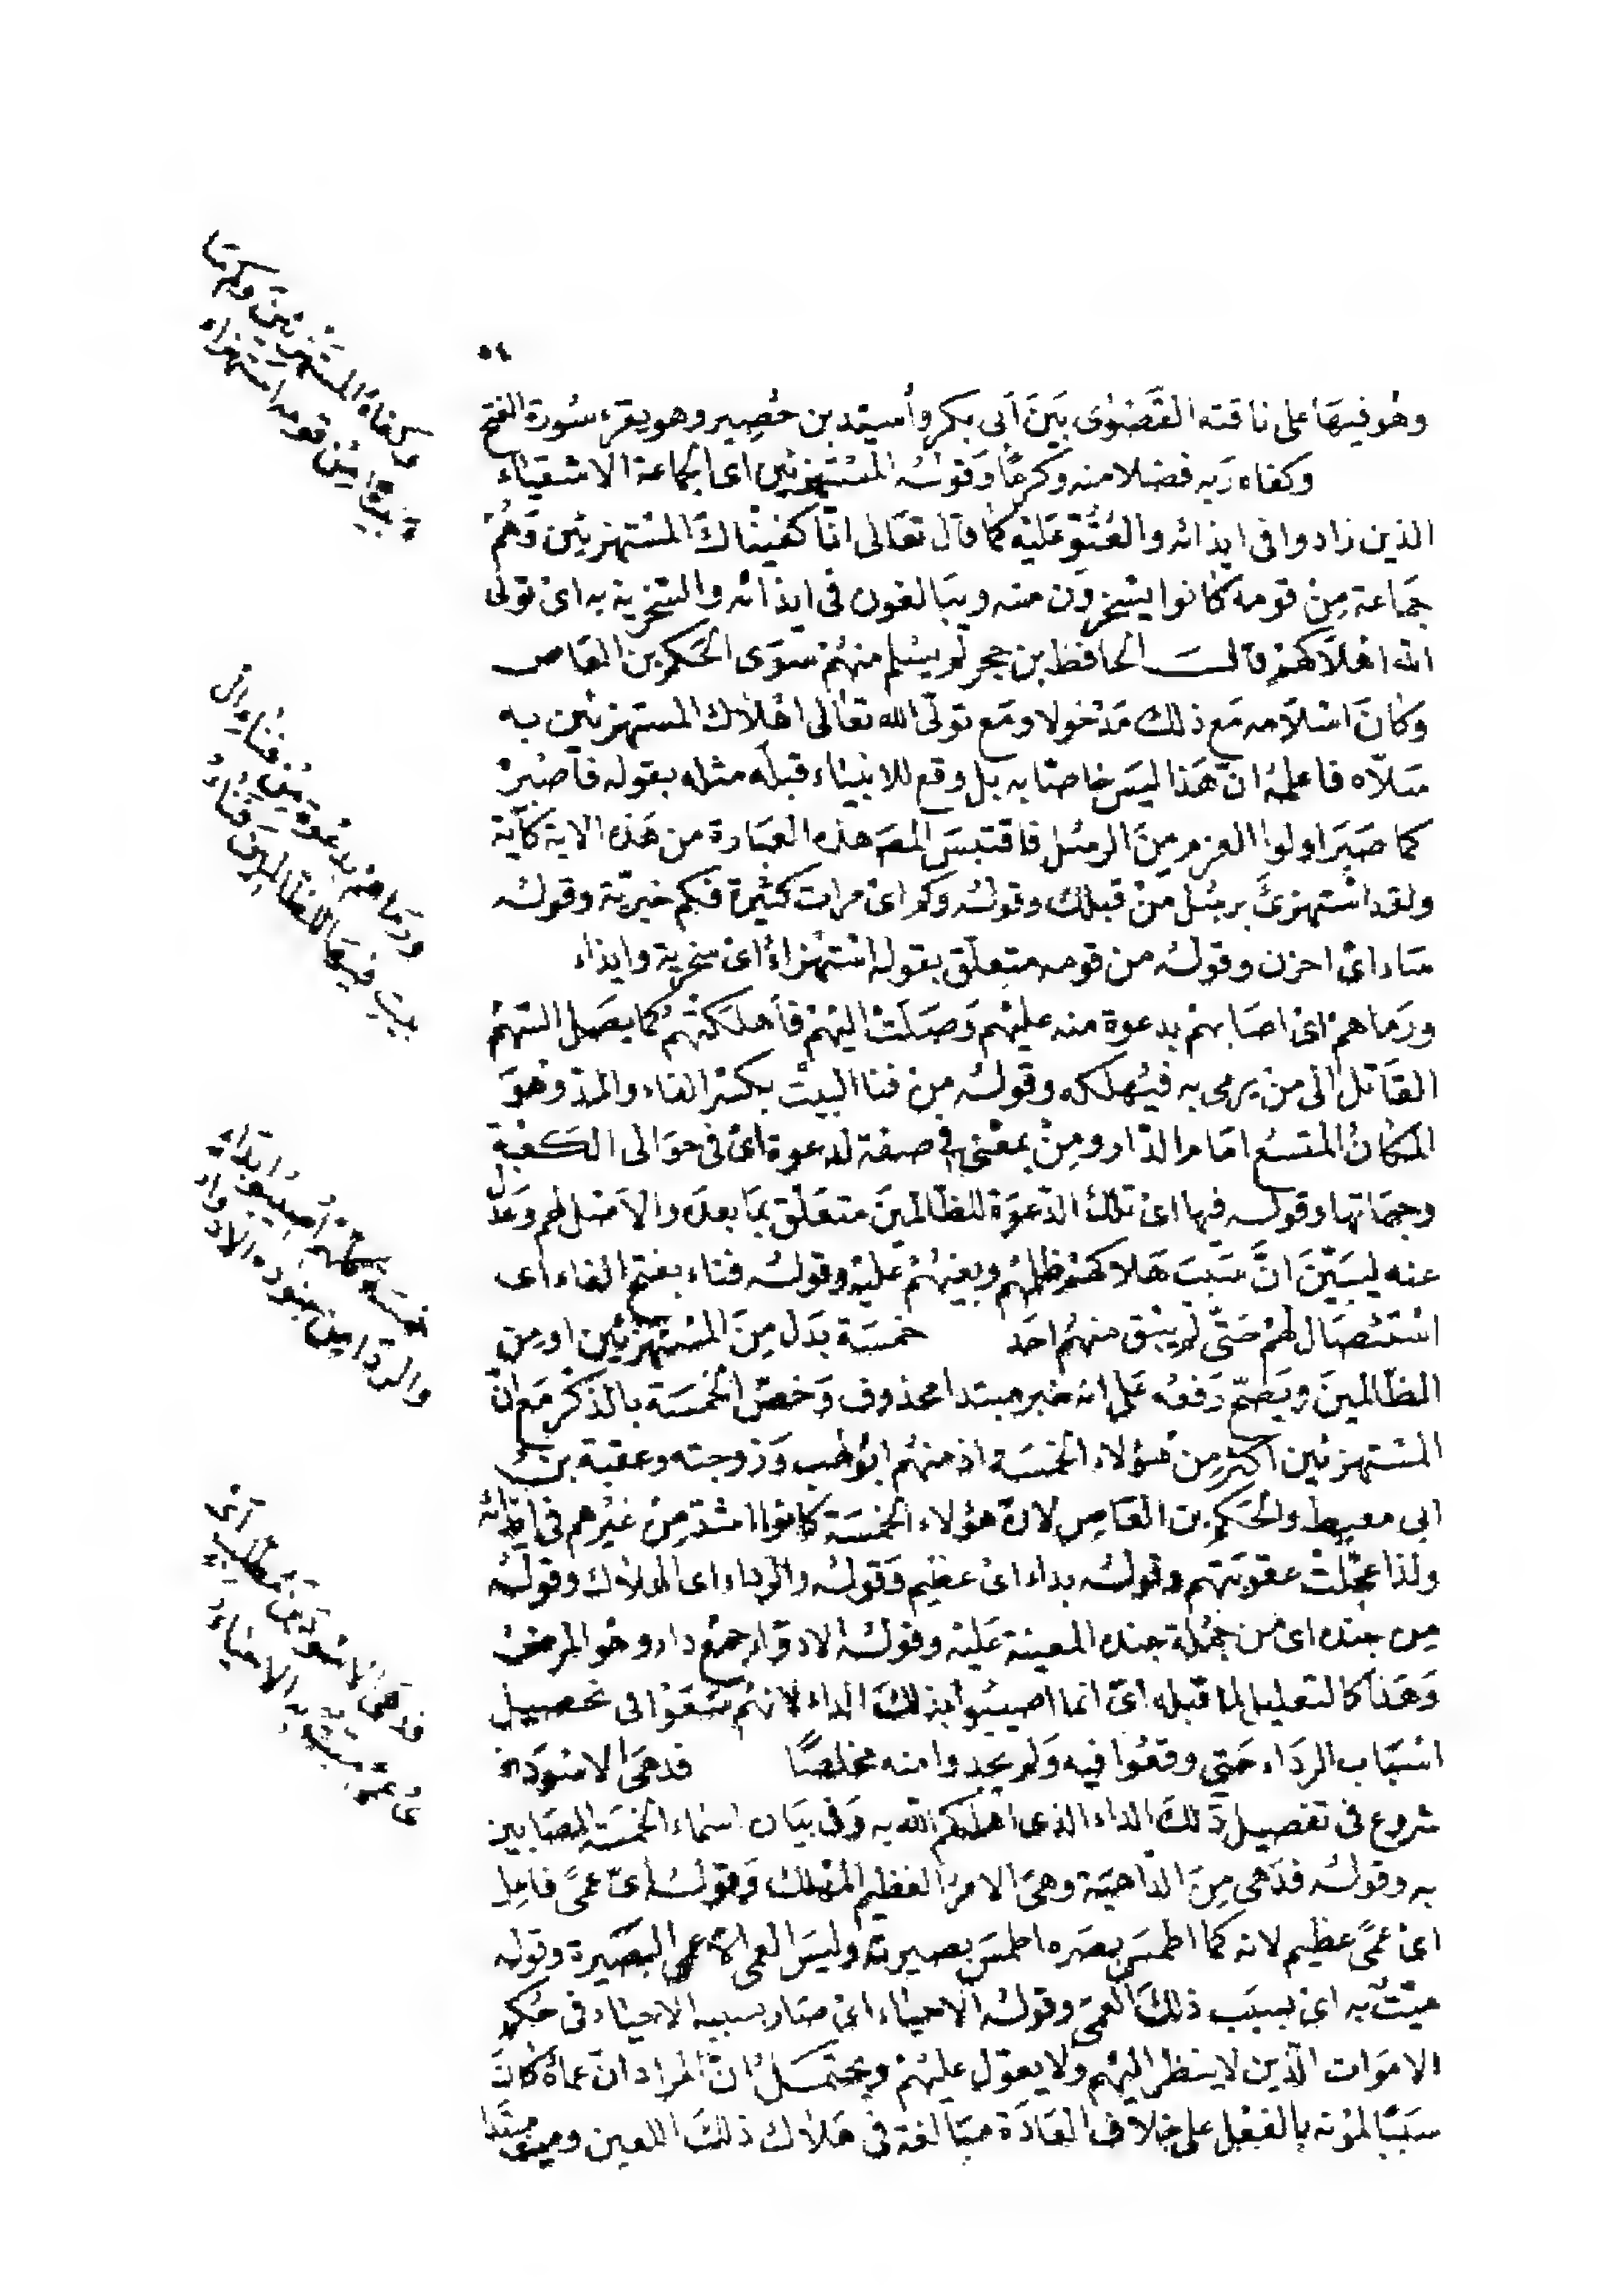 ٥٤
وهو فيها على ناقته القضوى بين أبى بكر وأسيد بن حضير وهو يقرء سورة الفتح
وكفاه ربه فضلا منه وكرما وقوله المستهزئين اى الجماعة الاشقياء
الذين زادوا فى ايذائه والعتو عليه كما قال تعالى انا كفيناك المستهزئين وهم
جماعة من قومه كانوا يسخرون منه ويبالغون فى ايذائه والسخرية به اى تولى
الله اهلاكهم قال الحافظ بن حجر لم يسلم منهم سوى الحكم بن العاص
وكان اسلامه مع ذلك مدخولا ومع تولى الله تعالى اهلاك المستهزئين به
سلاه فاعلمه ان هذا ليس خاصا به بل وقع للانبياء قبله مثله بقوله فاصبر
كما صبر اولوا العزم من الرسل فاقتبس المص هذه العبارة من هذه الاية كآية
ولقد استهزئ برسل من قبلك وقوله وكم اى مرات كثيرة فكم خبرية وقوله
ساء اى احزن وقوله من قومه متعلق بقوله استهزاء اى سخرية وايذاء
ورماهم اى اصابهم بدعوة منه عليهم وصلت اليهم فأهلكتهم كما يصل السهم
القاتل الى من يرمى به فيهلكه وقوله من فنا البيت بكسر الفاء والمد وهو
المكان المتسع امام الدار ومن بمعنى فى صفة لدعوة اى فى حوالى الكعبة
وجهاتها وقوله فيها اى تلك الدعوة للظالمين متعلق بما بعده والاصل لهم وعدل
عنه ليبين ان سبب هلاكهم ظلمهم وبغيهم عليه وقوله فناء بفتح الفاء اى
استئصال لهم حتى لم يبق منهم احد خمسة بدل من المستهزئين او من
الظالمين ويصح رفعه على انه خبر مبتدا محذوف وخص الخمسة بالذكر مع ان
المستهزئين اكثر من هؤلاء الخمسة اذ منهم ابو لهب وزوجته وعقبة بن
ابى معيط والحكم بن العاص لان هؤلاء الخمسة كانوا اشد من غيرهم فى ايذائه
ولذا عجلت عقوبتهم وقوله بداء اى عظيم وقوله والرداء اى الهلاك وقوله
من جنده اى من جملة جنده المعينة عليه وقوله الادواء جمع داء وهو المرض
وهذا كالتعليل لما قبله اى انما اصيبوا بذلك الداء لانهم سعوا فى تحصيل
اسباب الرداء حتى وقعوا فيه ولم يجدوا منه مخلصا فدهى الاسود الخ
شروع فى تفصيل ذلك الداء الذى اهلكهم الله به وفى بيان اسماء الخمسة المصابين
به وقوله فدهى من الداهية وهى الامر العظيم المهلك وقوله اى عمى فاعل
اى عمى عظيم لانه كما اطمس بصره اطمس بصيرته وليس العمى الا عمى البصيرة وقوله
ميت به اى بسبب ذلك العمى وقوله الاحياء اى صار بسببه الاحياء فى حكم
الاموات الذين لا ينظر اليهم ولا يعول عليهم ويحتمل ان المراد ان عماه كان
سببا لموته بالفعل على خلاف العادة مبالغة فى هلاك ذلك اللعين وميت مبتدا
وكفاه المستهزئين وكم سا
ء نبيا من قومه استهزاء
ورماهم بدعوة من فناء ال
بيت فيها للظالمين فناء
خمسة كلهم اصيبوا بداء
والردا من جنوده الادواء
فدهى الاسود بن مطلب اى
عمى ميت به الاحياء